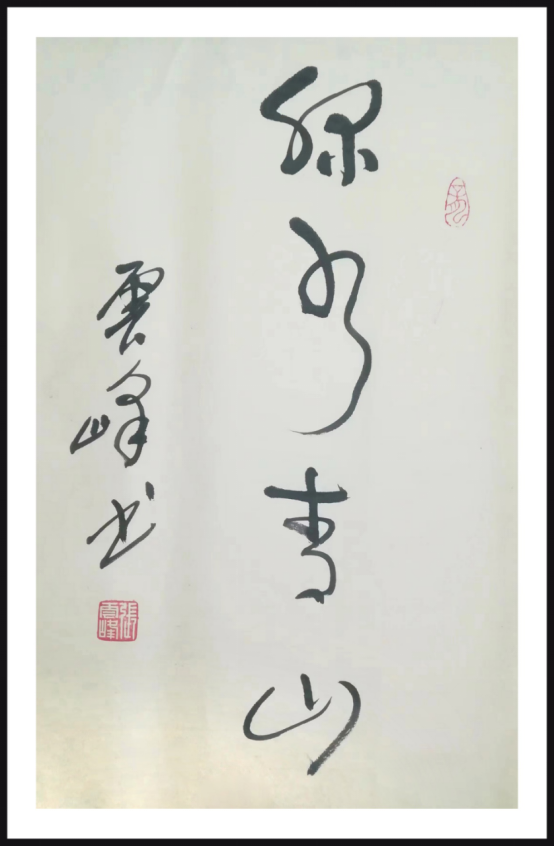 綠水青山
雲峰书
張雲峰